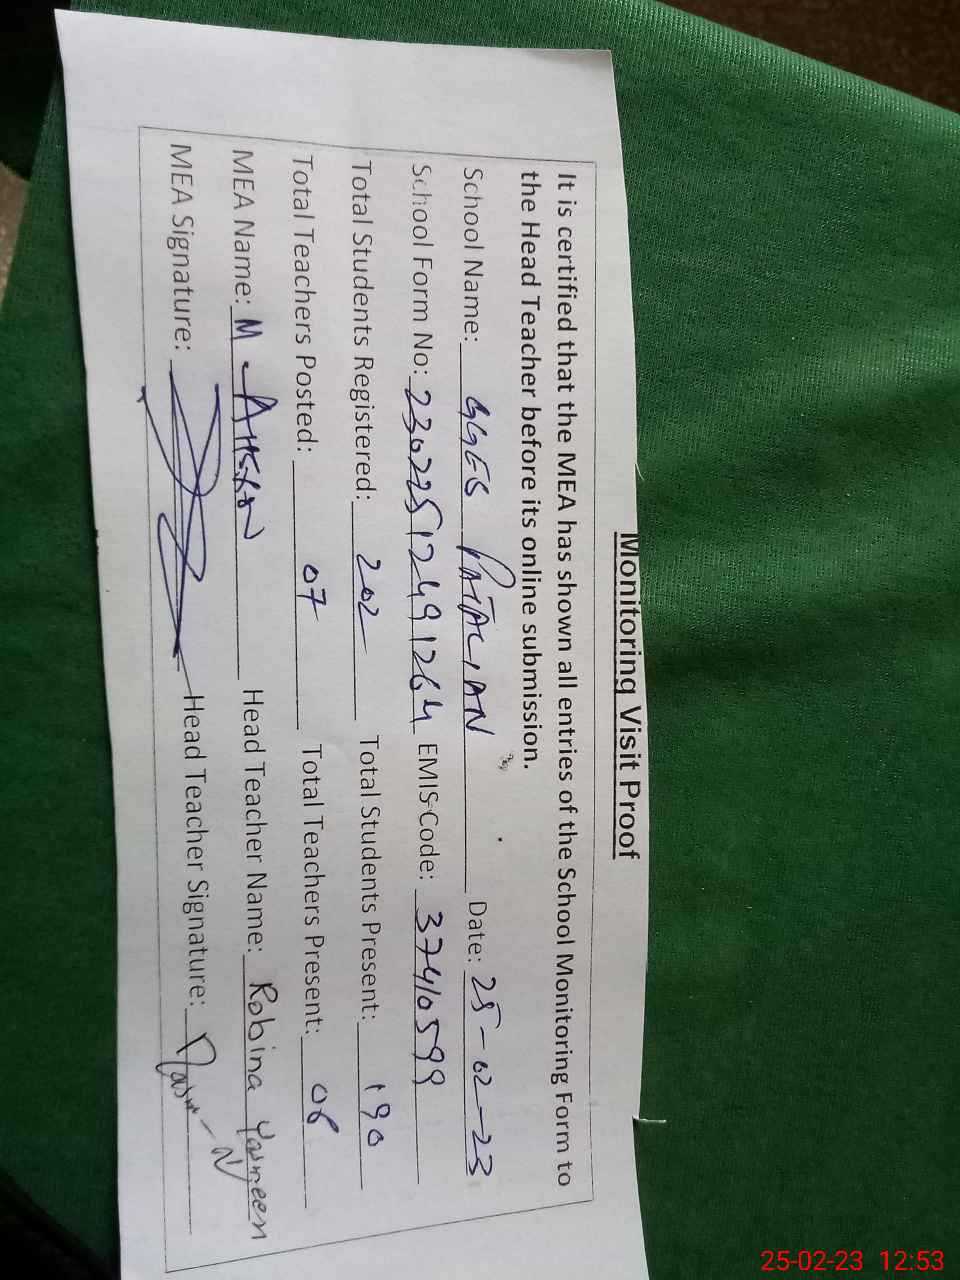 Monitoring Visit Proof
It is certified that the MEA has shown all entries of the School Monitoring Form to
the Head Teacher before its online submission.
School Name: GGES PATACIAN Date: 25-02-23
School Form No: 23022512491264 EMIS Code: 37410599
Total Students Registered: 202 Total Students Present: 190
Total Teachers Posted: 07 Total Teachers Present: 06
MEA Name: M. AHSAN Head Teacher Name: Robina Yasmeen
MEA Signature: Head Teacher Signature:
25-02-23 12:53